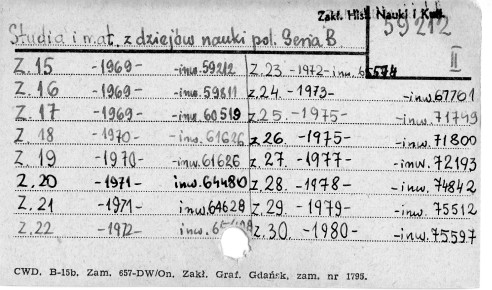 Zakł. Hist. Nauki i
Studia i mat. z dziejów nauki pol. Seria B
59212
II
Z. 15 -1969- -inw. 59212
Z. 16 -1969- -inw. 59811
Z. 17 -1969- -inw. 60519
Z. 18 -1970- -inw. 61626
Z. 19 -1970- -inw. 61626
Z. 20 -1971- inw. 64480
Z. 21 -1971- inw. 64628
Z. 22 -1972- inw.
Z. 23. -1972- inw.
Z. 24. -1973- -inw. 67761
Z. 25. -1975- -inw. 71749
Z. 26. -1975- -inw. 71800
Z. 27. -1977- -inw. 72193
Z. 28. -1978- -inw. 74842
Z. 29. -1979- -inw. 75512
Z. 30 -1980- -inw. 75597
CWD. B-15b. Zam. 657-DW/On. Zakł. Graf. Gdańsk, zam. nr 1795.